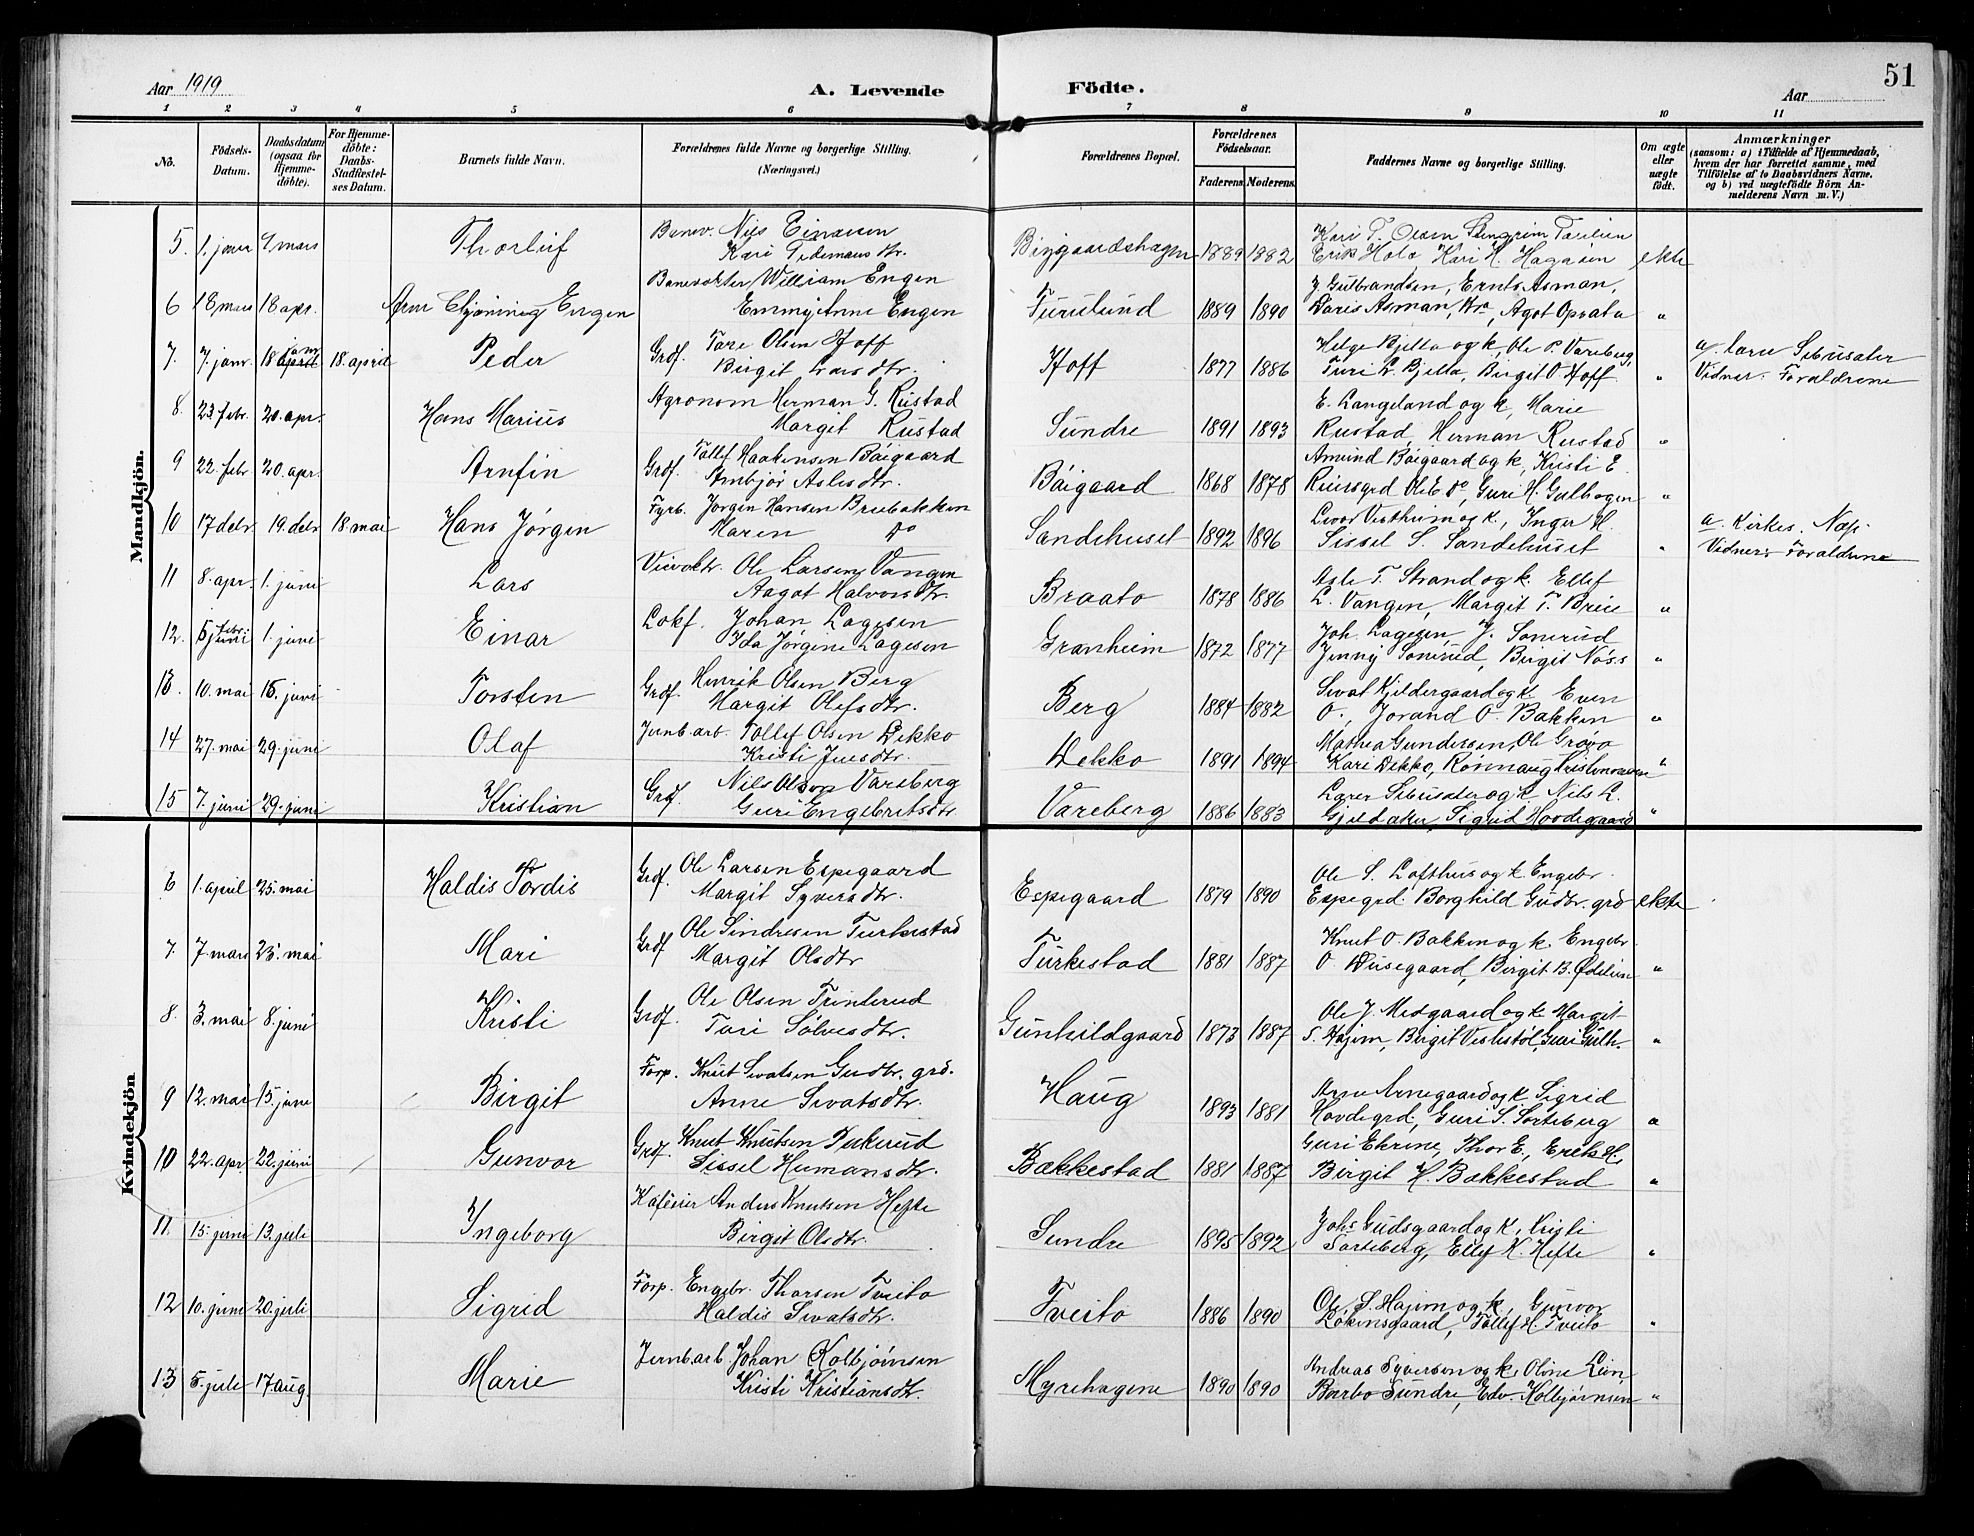 51
Aar 1919
A. Levende Födte.
Aar
1 2 3 4 5 6 7 8 9 10 11
No.
Födsels-Datum.
Daabsdatum (ogsaa for Hjemme-döbte).
For Hjemme-döbte: Daabs-Stadfæstel-ses Datum.
Barnets fulde Navn.
Forældrenes fulde Navne og borgerlige Stilling. (Næringsvei.)
Forældrenes Bopæl.
Forældrenes Födselsaar.
Faderens. Moderens.
Faddernes Navne og borgerlige Stilling.
Om ægte eller uægte födt.
Anmærkninger
(saasom: a) i Tilfælde af Hjemmedaab, hvem der har forrettet samme, med Tilföielse af to Daabsvidners Navne. og b) ved uægtefödte Börn An-melderens Navn m. V.)
Mandkjön.
5. 1. janr 9. mars Thorleif
Banev. Nils Einarsen
Kari Tidemansdtr.
1889 1882
Erik Holo, Kari H. Hagaien ekte
6 18 mars 18 apr. Arne Engen
Banevokter William Engen
Emmy Anne Engen
Furulund 1889 1890
J. Gulbrandsen, Ernts Asman,
Doris Asman, Agot Opsata "
7. 7. janr. 18 april janr 18. april Peder
Grdf. Tore Olsen Hoff
Birgit Larsdtr.
Hoff 1877 1886
Helge Bjella og k, Ole P. Vareberg,
Turi L. Bjella, Birgit O. Hoff "
Vidner: Foraldrene
8. 23 febr. 20. apr. Hans Marius
Agronom Herman G. Rustad
Margit Rustad
Sundre 1891 1893
E. Langeland og k, Marie
Rustad, Herman Rustad "
9 22. febr 20. apr. Arnfin
Grdf. Tollef Haakensen Böigaard
Ambjör Aslesdtr.
Böigaard 1868 1878
Amund Böigaard og k, Kristi E.
Ole E. do, Guri H. Gulhagen "
10 17 debr 19. debr 18. mai Hans Jörgen
Fyrb. Jörgen Hansen Brubakken
Maren do
Sandehuset 1892 1896
og k., Inger H.
Sissel S. Sandehuset "
a. Kirkes. Næss
Vidner: Foraldrene
11 8. apr. 1. juni Lars
Ole Larsen Vangen
Aagot Halvorsdtr.
Braato 1878 1886
Asle T. Strand og k. Ellef
L. Vangen, Margit T. Breie "
12. 5 juni febr. 1. juni Einar
Lokf. Johan Lagesen
Ida Jörgine Lagesen
Granheim 1872 1877
Joh. Lagesen, J. Sonerud
Jenny Sonerud, Birgit Nöss "
13. 10. mai 15. juni Torsten
Grdf. Henrik Olsen Berg
Margit Olefsdtr.
Berg 1884 1882
Sivat Kjeldergaard og k. Even
O., Jorand O. Bakken "
14 27. mai 29. juni Olaf
Jernb arb. Tollef Olsen Dekko
Kristi Juesdtr.
Dekko 1891 1894
Mathea Gundersen, Ole Grövo
Kari Dekko, Rönnaug Kristensen "
15 7. juni 29. juni Kristian
Grdf. Nils Olsen Vareberg
Guri Engebretsdtr
Vareberg 1886 1883
og k Nils L.
Gjeldaker, Sigrid Hovdegaard "
Kvindekjön
6 1. april 25. mai Haldis Tordis
Grdf. Ole Larsen Espegaard
Margit Syversdtr.
Espegaard 1879 1890
Ole S. Lofthus og k Engebr.
Espegrd. Borghild Gudbr. grd ekte
7. 7 mars 25. mai Mari
Grdf Ole Sindresen Turkestad
Margit Olsdtr
Turkestad 1881 1887
Knut O. Bakken og k. Engebr.
O. Dusegaard, Birgit B. Ödelien "
8. 3. mai 8. juni Kristi
Grdf. Ole Olsen Trinterud
Turi Sölvesdtr.
Gunhildgaard 1873 1887
Ole J. Medgaard og k Margit
S. Hajem, Birgit Veslestöl, Guri Gulh. "
9 12. mai 15. juni Birgit
Forp. Knut Sivatsen Gudbr. grd.
Anne Sivatsdtr.
Haug 1893 1881
Arne Arnegaard og k Sigrid
Hovdegrd, Guri S. Sorteberg "
10 22. apr. 22. juni Gunvor
Grdf. Knut Knutsen
Sissel Hermansdtr.
Bakkestad 1881 1887
Guri Ekrene, Thor E., Erik H.,
Birgit H. Bakkestad "
11. 15. juni 13. juli Ingeborg
Kaféeier Anders Knutsen Hefte
Birgit Olsdtr.
Sundre 1895 1892
Johs Gudsgaard og k, Kristi
Sorteberg, Ellef K. Hefte "
12 10. juni 20. juli Sigrid
Forp. Engebr. Thorsen Tveito
Haldis Sivatsdtr.
Tveito 1886 1890
Ole S. Hajem og k, Gunvor
Lökensgaard, Tollef H. Tveito "
13 5. juli 17 aug. Marie
Jernb arb. Johan Kolbjörnsen
Kristi Kristiansdtr.
Myrehagene 1890 1890
Andreas Syversen og k, Oline Lein,
Barbo Sundre, Edv. Kolbjörnsen "